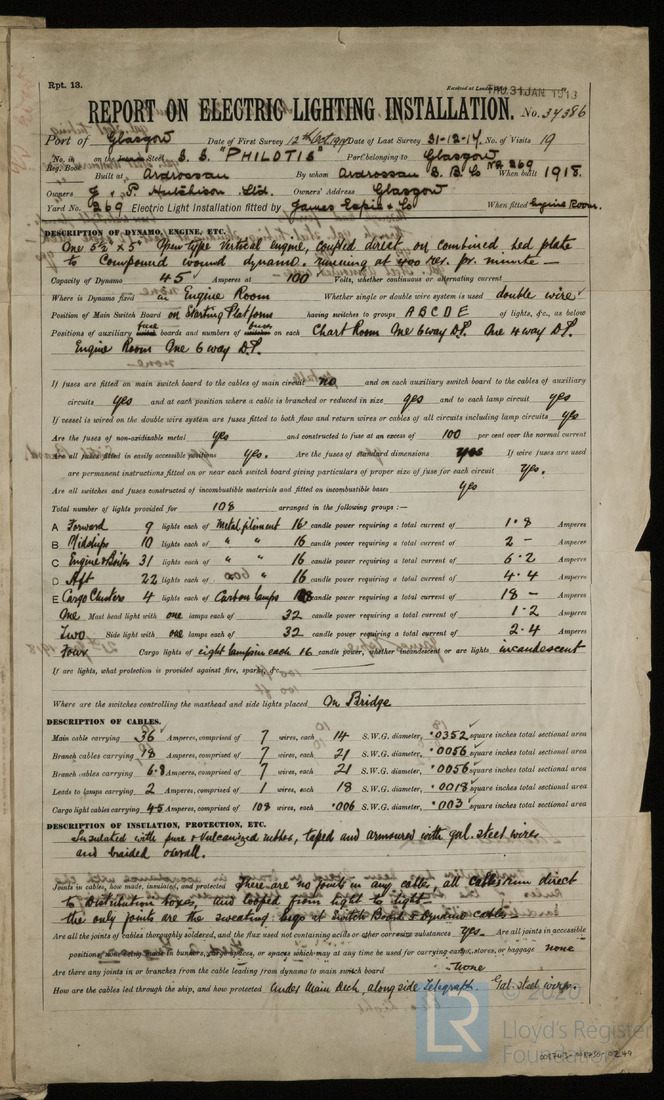 Rpt. 13.
Received at London
THU. 31 JAN 1918
REPORT ON ELECTRIC LIGHTING INSTALLATION. No. 37386
Port of Glasgow Date of First Survey 12th Date of Last Survey 31-12-17 No. of Visits 19
No. in Reg. Book on the Steel S.S. "PHILOTIS" Port belonging to Glasgow
Built at Ardrossan By whom Ardrossan S. B. Co No 269 When built 1918.
Owners J. & P. Hutchison Ltd. Owners' Address Glasgow
Yard No. 269 Electric Light Installation fitted by James Espie & Co When fitted Engine Room.
DESCRIPTION OF DYNAMO, ENGINE, ETC.
One 5½" x 5" Open type Vertical engine, coupled direct, on combined bed plate
to Compound wound dynamo. running at 400 rev. pr. minute —
Capacity of Dynamo 45 Amperes at 100 Volts, whether continuous or alternating current
Where is Dynamo fixed in Engine Room Whether single or double wire system is used double wire
Position of Main Switch Board on Starting Platform having switches to groups A B C D E of lights, &c., as below
Positions of auxiliary fuse boards and numbers of fuses on each Chart Room One 6 way D.P. One 4 way D.P.
Engine Room One 6 way D.P.
If fuses are fitted on main switch board to the cables of main circuit no and on each auxiliary switch board to the cables of auxiliary
circuits yes and at each position where a cable is branched or reduced in size yes and to each lamp circuit yes
If vessel is wired on the double wire system are fuses fitted to both flow and return wires or cables of all circuits including lamp circuits yes
Are the fuses of non-oxidizable metal yes and constructed to fuse at an excess of 100 per cent over the normal current
Are all fuses fitted in easily accessible positions yes. Are the fuses of standard dimensions yes If wire fuses are used
are permanent instructions fitted on or near each switch board giving particulars of proper size of fuse for each circuit yes.
Are all switches and fuses constructed of incombustible materials and fitted on incombustible bases yes
Total number of lights provided for 108 arranged in the following groups :—
A Forward 9 lights each of Metal filement 16 candle power requiring a total current of 1·8 Amperes
B Midships 10 lights each of " " 16 candle power requiring a total current of 2 - Amperes
C Engine & Boiler 31 lights each of " " 16 candle power requiring a total current of 6·2 Amperes
D Aft 22 lights each of " 16 candle power requiring a total current of 4·4 Amperes
E Cargo Clusters 4 lights each of Carbon lamps candle power requiring a total current of 18 - Amperes
One Mast head light with one lamps each of 32 candle power requiring a total current of 1·2 Amperes
Two Side light with one lamps each of 32 candle power requiring a total current of 2·4 Amperes
Four Cargo lights of eight lamps in each 16 candle power, whether incandescent or arc lights incandescent
If arc lights, what protection is provided against fire, sparks, &c.
Where are the switches controlling the masthead and side lights placed On Bridge
DESCRIPTION OF CABLES.
Main cable carrying 36 Amperes, comprised of 7 wires, each 14 S.W.G. diameter, ·0352 square inches total sectional area
Branch cables carrying 18 Amperes, comprised of 7 wires, each 21 S.W.G. diameter, ·0056 square inches total sectional area
Branch cables carrying 6·8 Amperes, comprised of 7 wires, each 21 S.W.G. diameter, ·0056 square inches total sectional area
Leads to lamps carrying 2 Amperes, comprised of 1 wires, each 18 S.W.G. diameter, ·0018 square inches total sectional area
Cargo light cables carrying 4·5 Amperes, comprised of 108 wires, each ·006 S.W.G. diameter, ·003 square inches total sectional area
DESCRIPTION OF INSULATION, PROTECTION, ETC.
Insulated with pure & Vulcanized rubber, taped and armoured with gal. steel wires
and braided overall.
Joints in cables, how made, insulated, and protected There are no joints in any cables, all cables run direct
to Distribution boxes, and looped from light to light —
the only joints are the sweating lugs at Switch Board & Dynamo cables —
Are all the joints of cables thoroughly soldered, and the flux used not containing acids or other corrosive substances yes Are all joints in accessible
positions, none being made in bunkers, cargo spaces, or spaces which may at any time be used for carrying cargo, stores, or baggage none
Are there any joints in or branches from the cable leading from dynamo to main switch board none
How are the cables led through the ship, and how protected Under Main Deck, alongside Telegraph. Gal. steel wires.
© 2020
LR Lloyd's Register
Foundation